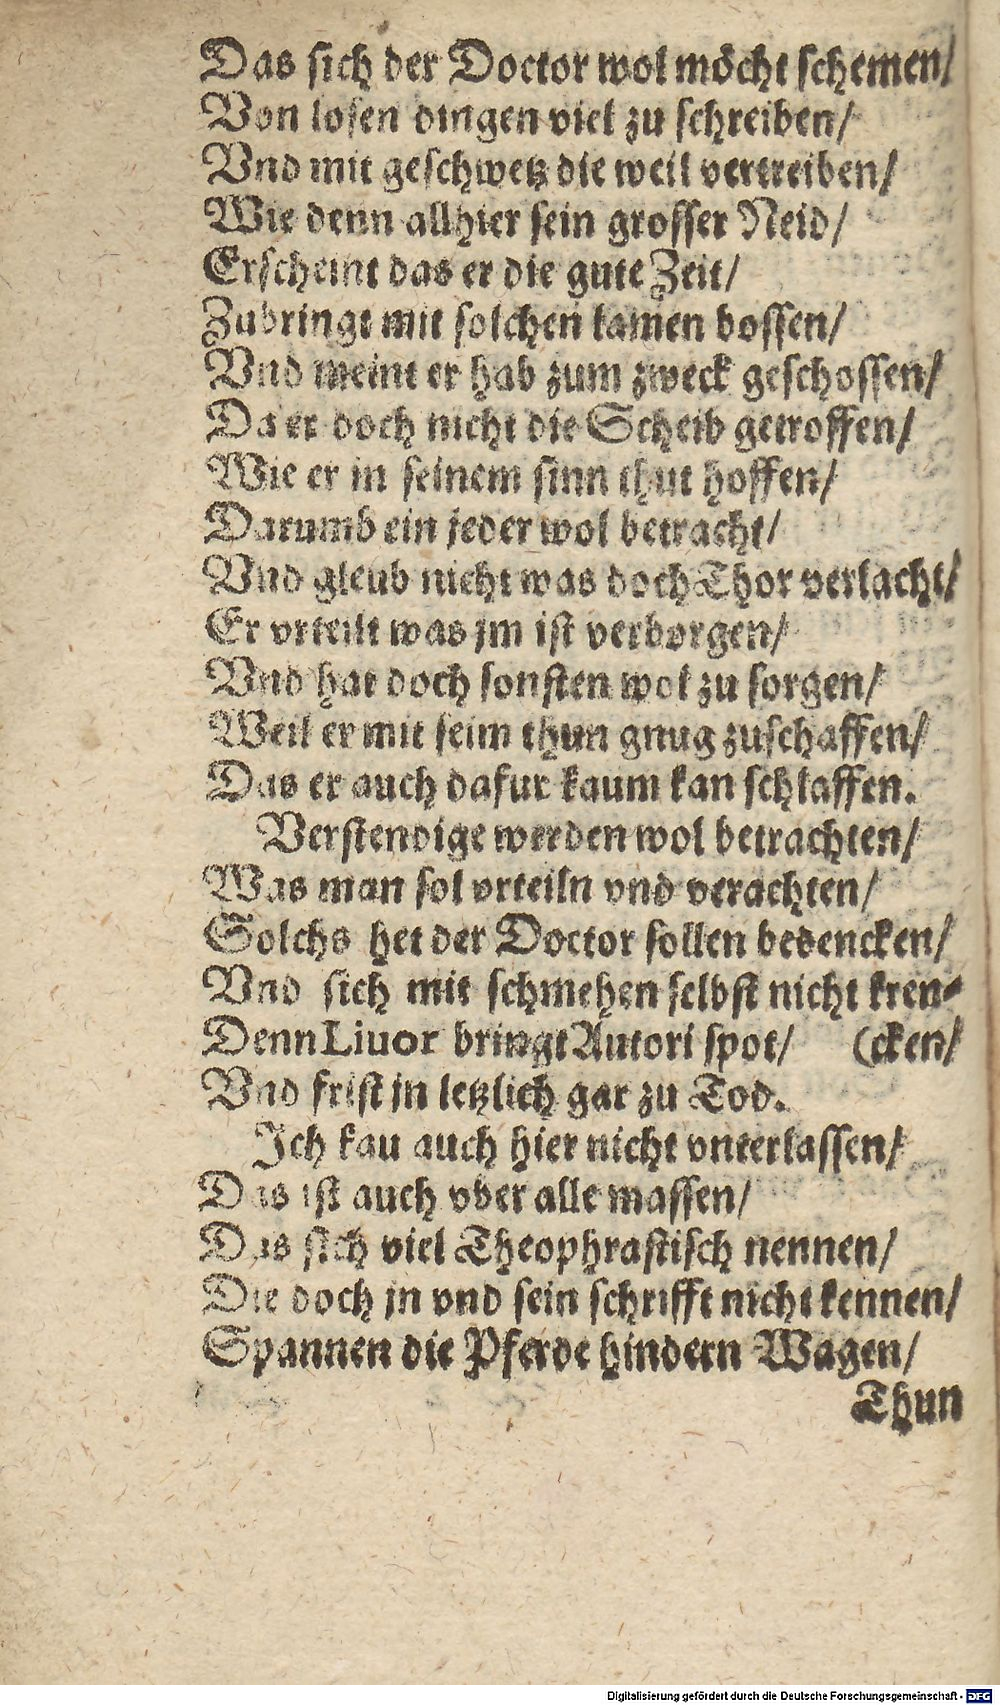 Das sich der Doctor wol möcht schemen/
Von losen dingen viel zu schreiben/
Vnd mit geschwetz die weil vertreiben/
Wie denn allhier sein grosser Neid/
Erscheint das er die gute Zeit/
Zubringt mit solchen kamen bossen/
Vnd meint er hab zum zweck geschossen/
Da er doch nicht die Scheib getroffen/
Wie er in seinem sinn thut hoffen/
Darumb ein jeder wol betracht/
Vnd gleub nicht was doch Thor verlacht/
Er vrteilt was jm ist verborgen/
Vnd hat doch sonsten wol zu sorgen/
Weil er mit seim thun gnug zuschaffen/
Das er auch dafur kaum kan schlaffen.
Verstendige werden wol betrachten/
Was man sol vrteiln vnd verachten/
Solchs het der Doctor sollen bedencken/
Vnd sich mit schmehen selbst nicht kren-
Denn Liuor bringt Autori spot/ (cken/
Vnd frist jn letzlich gar zu Tod.
Ich kau auch hier nicht vnterlassen/
Das ist auch vber alle massen/
Das sich viel Theophrastisch nennen/
Die doch jn vnd sein schrifft nicht kennen/
Spannen die Pferde hindern Wagen/
Thun
Digitalisierung gefördert durch die Deutsche Forschungsgemeinschaft - DFG